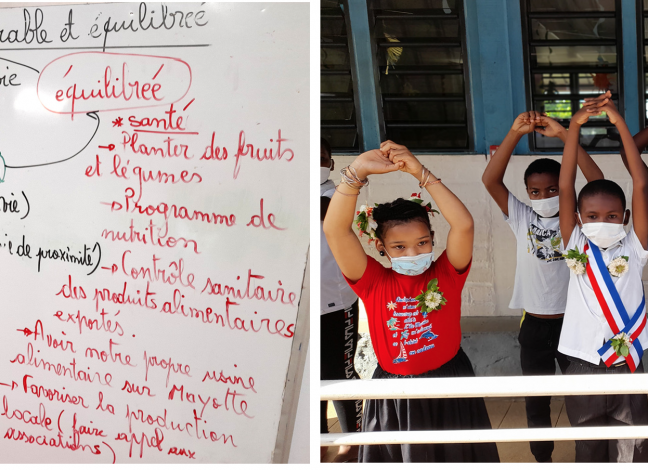 rable et équilibreé
équilibreé
*santé
→ Planter des fruits
et légumes
→ Programme de
nutrition
vie)
ie de proximité)
→ Contrôle sanitaire
des produits alimentaires
exportés
→ Avoir notre propre usine
alimentaire sur Mayotte
→ Favoriser la production
locale (faire appel aux
associations)